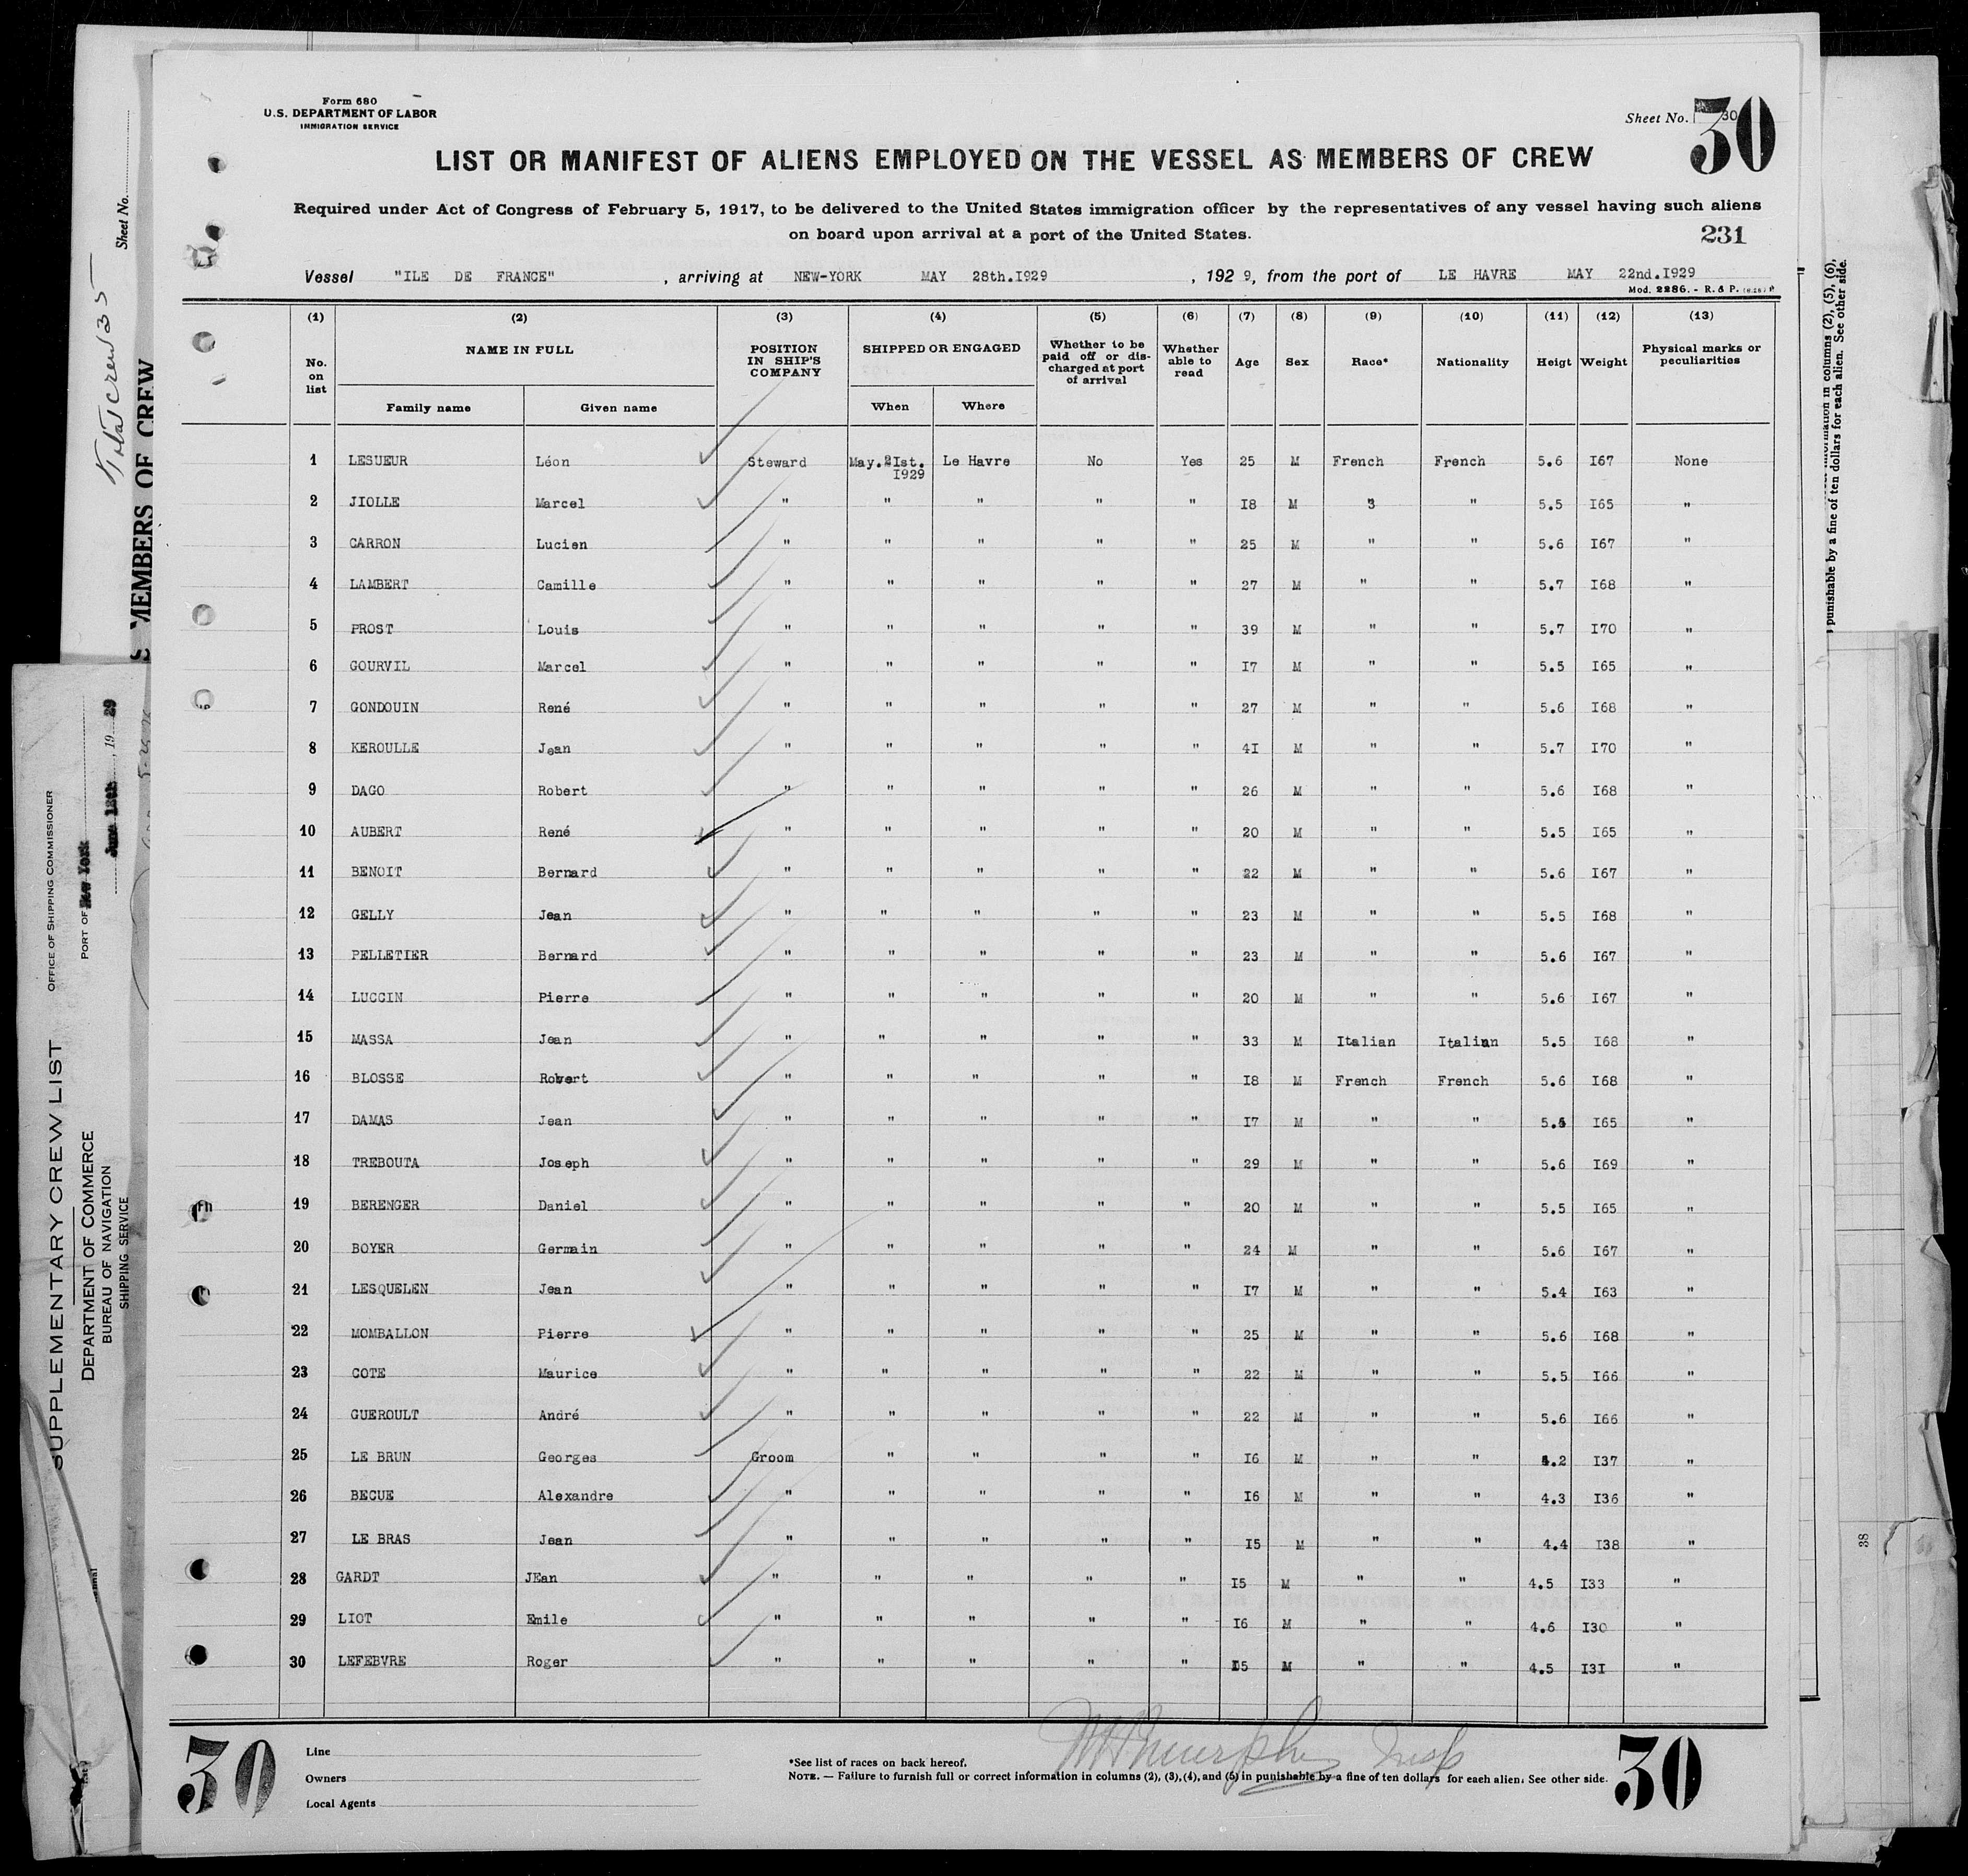 Form 680
U.S. DEPARTMENT OF LABOR
IMMIGRATION SERVICE
Sheet No. 30
30
LIST OR MANIFEST OF ALIENS EMPLOYED ON THE VESSEL AS MEMBERS OF CREW
Required under Act of Congress of February 5, 1917, to be delivered to the United States immigration officer by the representatives of any vessel having such aliens
on board upon arrival at a port of the United States.
231
Vessel "ILE DE FRANCE" , arriving at NEW-YORK MAY 28th.I929 , 192 9, from the port of LE HAVRE MAY 22nd.I929
Mod. 2286. - R. & P.
(1) (2) (3) (4) (5) (6) (7) (8) (9) (10) (11) (12) (13)
No. on list NAME IN FULL Family name Given name POSITION IN SHIP'S COMPANY SHIPPED OR ENGAGED When Where Whether to be paid off or discharged at port of arrival Whether able to read Age Sex Race* Nationality Heigt Weight Physical marks or peculiarities
1 LESUEUR Léon Steward May.2Ist. I929 Le Havre No Yes 25 M French French 5.6 I67 None
2 JIOLLE Marcel " " " " " I8 M 3 " 5.5 I65 "
3 CARRON Lucien " " " " " 25 M " " 5.6 I67 "
4 LAMBERT Camille " " " " " 27 M " " 5.7 I68 "
5 PROST Louis " " " " " 39 M " " 5.7 I70 "
6 GOURVIL Marcel " " " " " I7 M " " 5.5 I65 "
7 GONDOUIN René " " " " " 27 M " " 5.6 I68 "
8 KEROULLE Jean " " " " " 4I M " " 5.7 I70 "
9 DAGO Robert " " " " " 26 M " " 5.6 I68 "
10 AUBERT René " " " " " 20 M " " 5.5 I65 "
11 BENOIT Bernard " " " " " 22 M " " 5.6 I67 "
12 GELLY Jean " " " " " 23 M " " 5.5 I68 "
13 PELLETIER Bernard " " " " " 23 M " " 5.6 I67 "
14 LUCCIN Pierre " " " " " 20 M " " 5.6 I67 "
15 MASSA Jean " " " " " 33 M Italian Italian 5.5 I68 "
16 BLOSSE Robert " " " " " I8 M French French 5.6 I68 "
17 DAMAS Jean " " " " " I7 M " " I65 "
18 TREBOUTA Joseph " " " " " 29 M " " 5.6 I69 "
19 BERENGER Daniel " " " " " 20 M " " 5.5 I65 "
20 BOYER Germain " " " " " 24 M " " 5.6 I67 "
21 LESQUELEN Jean " " " " " I7 M " " 5.4 I63 "
22 MOMBALLON Pierre " " " " " 25 M " " 5.6 I68 "
23 COTE Maurice " " " " " 22 M " " 5.5 I66 "
24 GUEROULT André " " " " " 22 M " " 5.6 I66 "
25 LE BRUN Georges Groom " " " " I6 M " " I37 "
26 BECUE Alexandre " " " " " I6 M " " 4.3 I36 "
27 LE BRAS Jean " " " " " I5 M " " 4.4 I38 "
28 GARDT JEan " " " " " I5 M " " 4.5 I33 "
29 LIOT Emile " " " " " I6 M " " 4.6 I30 "
30 LEFEBVRE Roger " " " " " I5 M " " 4.5 I3I "
30
Line
Owners
Local Agents
*See list of races on back hereof.
NOTE. — Failure to furnish full or correct information in columns (2), (3), (4), and (5) in punishable by a fine of ten dollars for each alien. See other side.
Murphy Insp
30
Sheet No.
Total Crew 35
MEMBERS OF CREW
SUPPLEMENTARY CREW LIST
DEPARTMENT OF COMMERCE
BUREAU OF NAVIGATION
SHIPPING SERVICE
OFFICE OF SHIPPING COMMISSIONER
PORT OF New York
June 18th, 19 29
information in columns (2), (5), (6),
punishable by a fine of ten dollars for each alien. See other side.
38